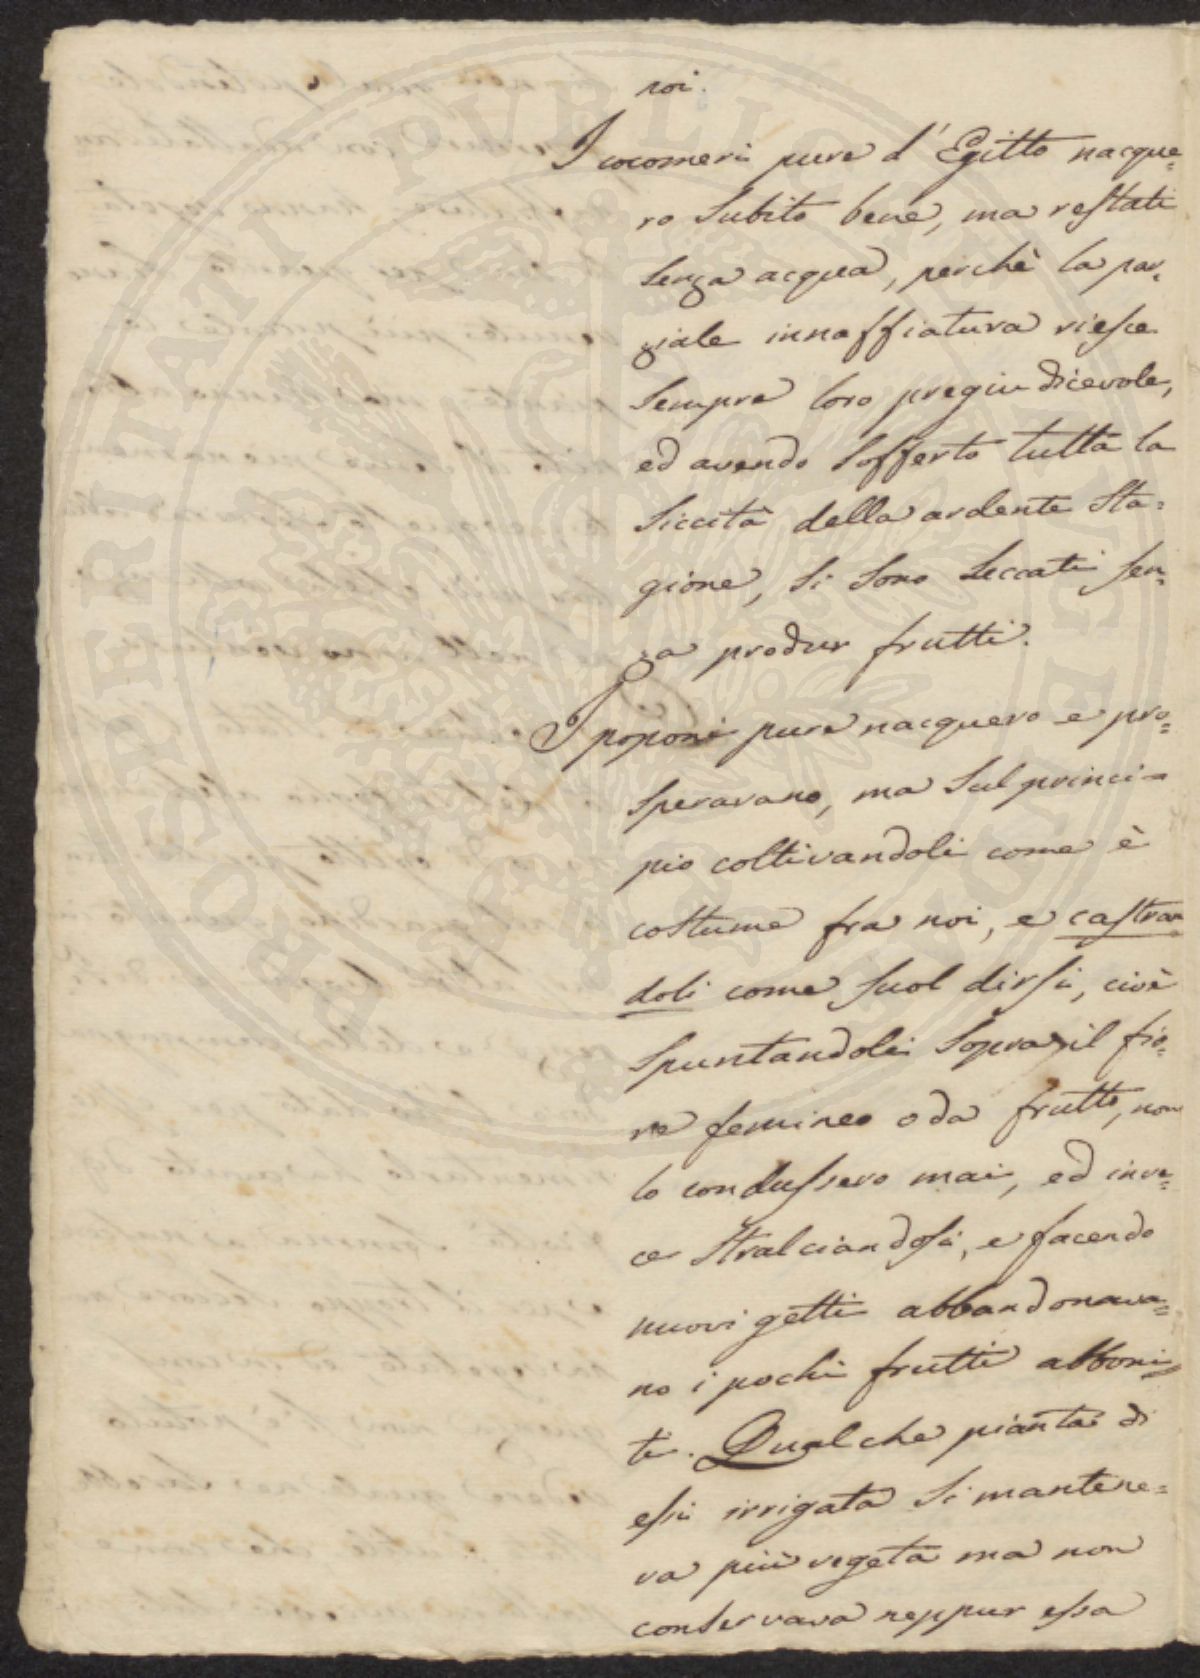 noi.
I cocomeri pure d'Egitto nacque=
ro subito bene, ma restati
senza acqua, perchè la par=
ziale innaffiatura riesce
sempre loro pregiudicevole,
ed avendo sofferto tutta la
siccità della ardente sta=
gione, si sono seccati sen=
za produr frutti.
I poponi pure nacquero e pro=
speravano, ma sul princi=
pio coltivandoli come è
costume fra noi, e castran
doli come suol dirsi, cioè
spuntandoli sopra il fio=
re femineo o da frutto, non
lo condussero mai, ed inve=
ce stralciandosi, e facendo
nuovi getti abbandonava=
no i pochi frutti abboni=
ti. Qualche pianta di
essi irrigata si mantene=
va più vegeta ma non
conservava neppur essa
PROSPERITATI PVBLICAE AVGENDAE